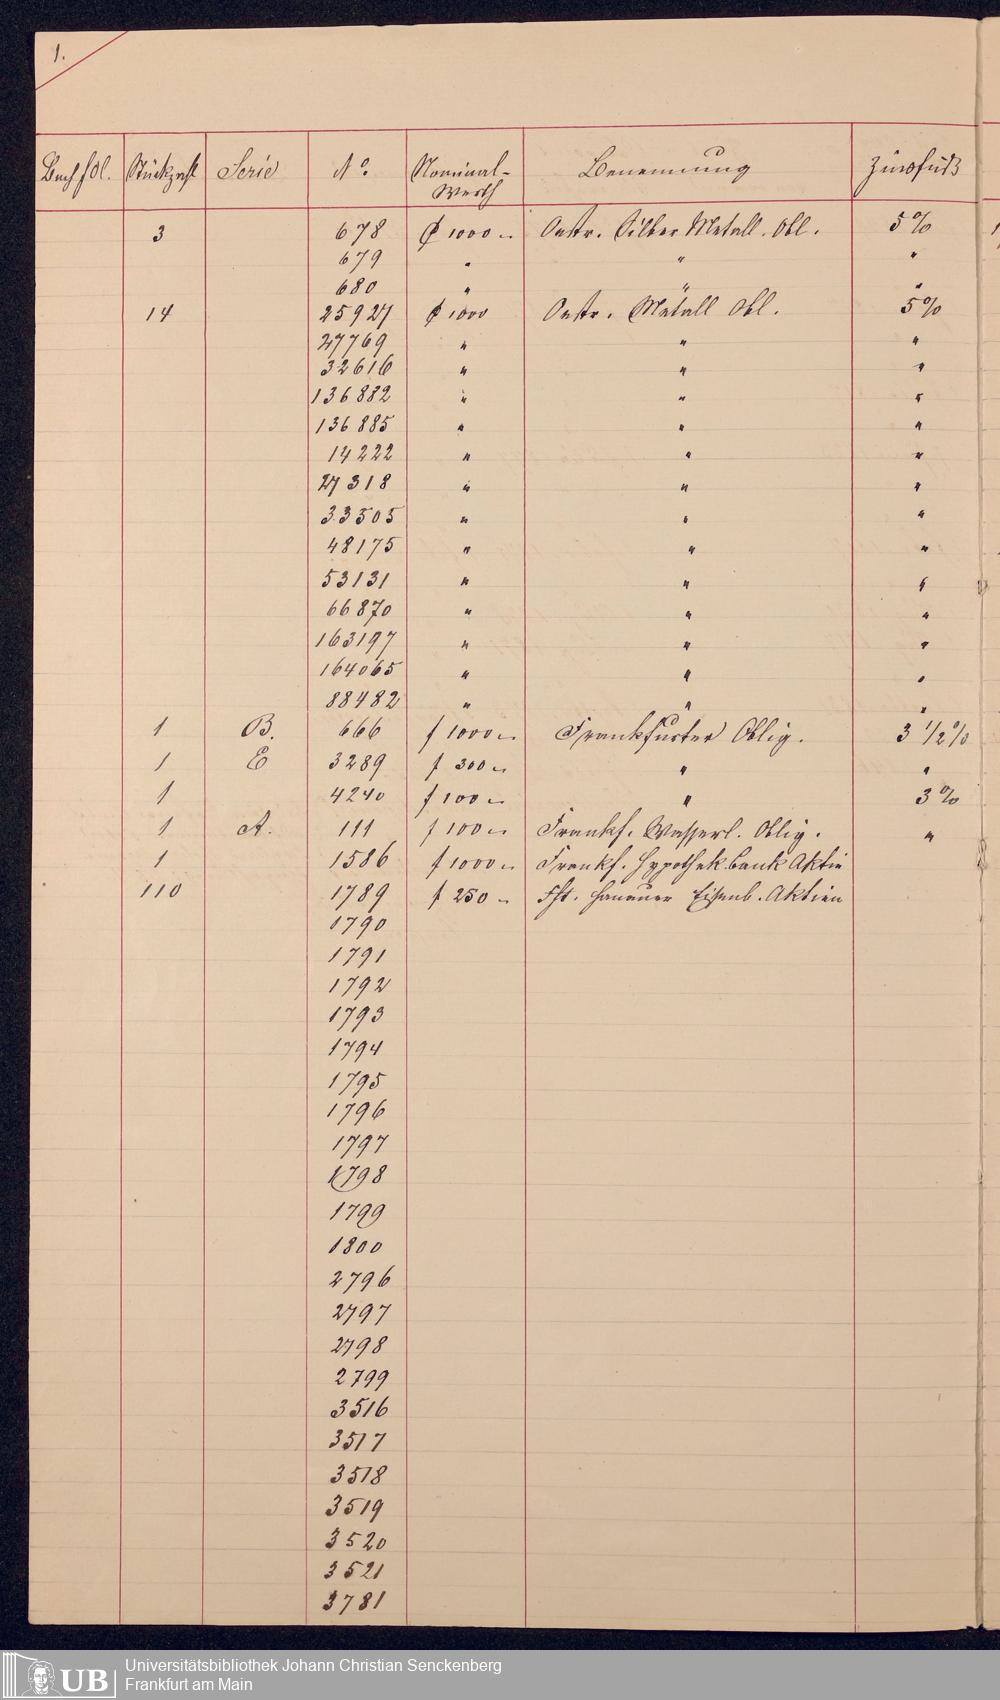 1.
Buch fol. Stückzahl Serie No. Nominal- Benennung Zinsfuß
Werth
3 678 f 1000 „ Oestr. Silber Metall. Obl. 5%
679 „ „ „
680 „ „ „
14 25927 f 1000 Oestr. Metall Obl. 5%
27769 „ „ „
32616 „ „ „
136882 „ „ „
136885 „ „ „
14222 „ „ „
27318 „ „ „
33505 „ „ „
48175 „ „ „
53131 „ „ „
66870 „ „ „
163197 „ „ „
164065 „ „ „
88482 „ „ „
1 B. 666 f 1000 „ Frankfurter Oblig. 3 1/2%
1 E 3289 f 300 „ „ „
1 4240 f 100 „ „ 3%
1 A. 111 f 100 „ Frankf. Wasserl. Oblig. „
1 1586 f 1000 „ Frankf. Hypothek.bank Aktie
110 1789 f 250 „ Fft. Hanauer Eisenb. Aktien
1790
1791
1792
1793
1794
1795
1796
1797
1798
1799
1800
2796
2797
2798
2799
3516
3517
3518
3519
3520
3521
3781
UB Universitätsbibliothek Johann Christian Senckenberg
Frankfurt am Main